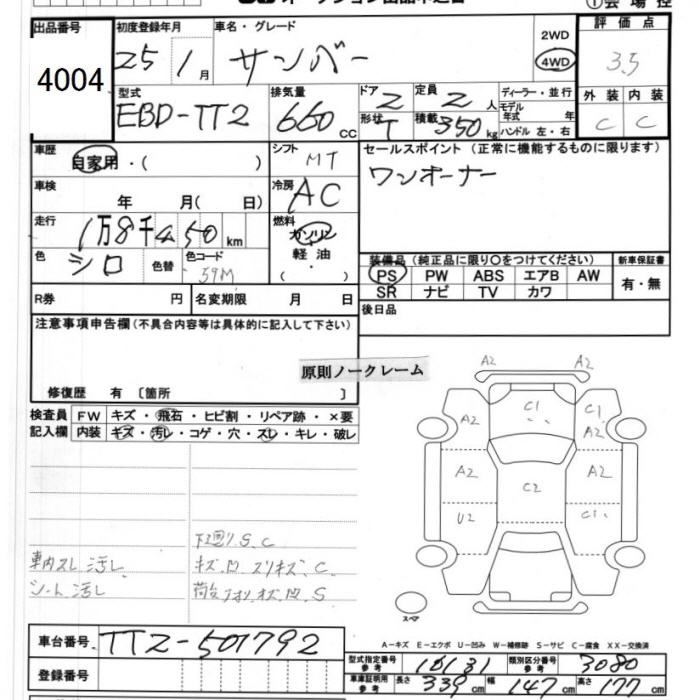 出品番号 初度登録年月 車名・グレード 評価点
4004 25 1月 サンバー 2WD 4WD 3.5
型式 排気量 ドア 定員 ディーラー・並行 外装 内装
EBD-TT2 660 CC 2 2人 モデル年式 年 C C
形状 T 積載 350 kg ハンドル 左・右
車歴 自家用・( ) シフト MT セールスポイント (正常に機能するものに限ります)
車検 年 月( 日) 冷房 AC ワンオーナー
走行 1万8千450 km 燃料 ガソリン 軽油・( )
色 シロ 色替 色コード 59M 装備品 (純正品に限り○をつけてください) 新車保証書
PS PW ABS エアB AW 有・無
SR ナビ TV カワ
R券 円 名変期限 月 日 後日品
注意事項申告欄 (不具合内容等は具体的に記入して下さい)
原則ノークレーム
修復歴 有 〔箇所 〕
検査員 FW キズ・飛石・ヒビ割・リペア跡・×要
記入欄 内装 キズ・汚レ・コゲ・穴・スレ・キレ・破レ
A2 A2
A2 C1 C1
A2
A2 C2 A2
U2 C1
下廻りS.C
車内スレ 汚レ キズ 凹 スリキズ.C
シート汚レ 荷台アオリ キズ 凹 S
スペア
車台番号 TT2-501792
A－キズ E－エクボ U－凹み W－補修跡 S－サビ C－腐食 XX－交換済
型式指定番号 参考 16131 類別区分番号 参考 3080
登録番号 車庫証明用 参考 長さ 339 cm 幅 147 cm 高さ 177 cm